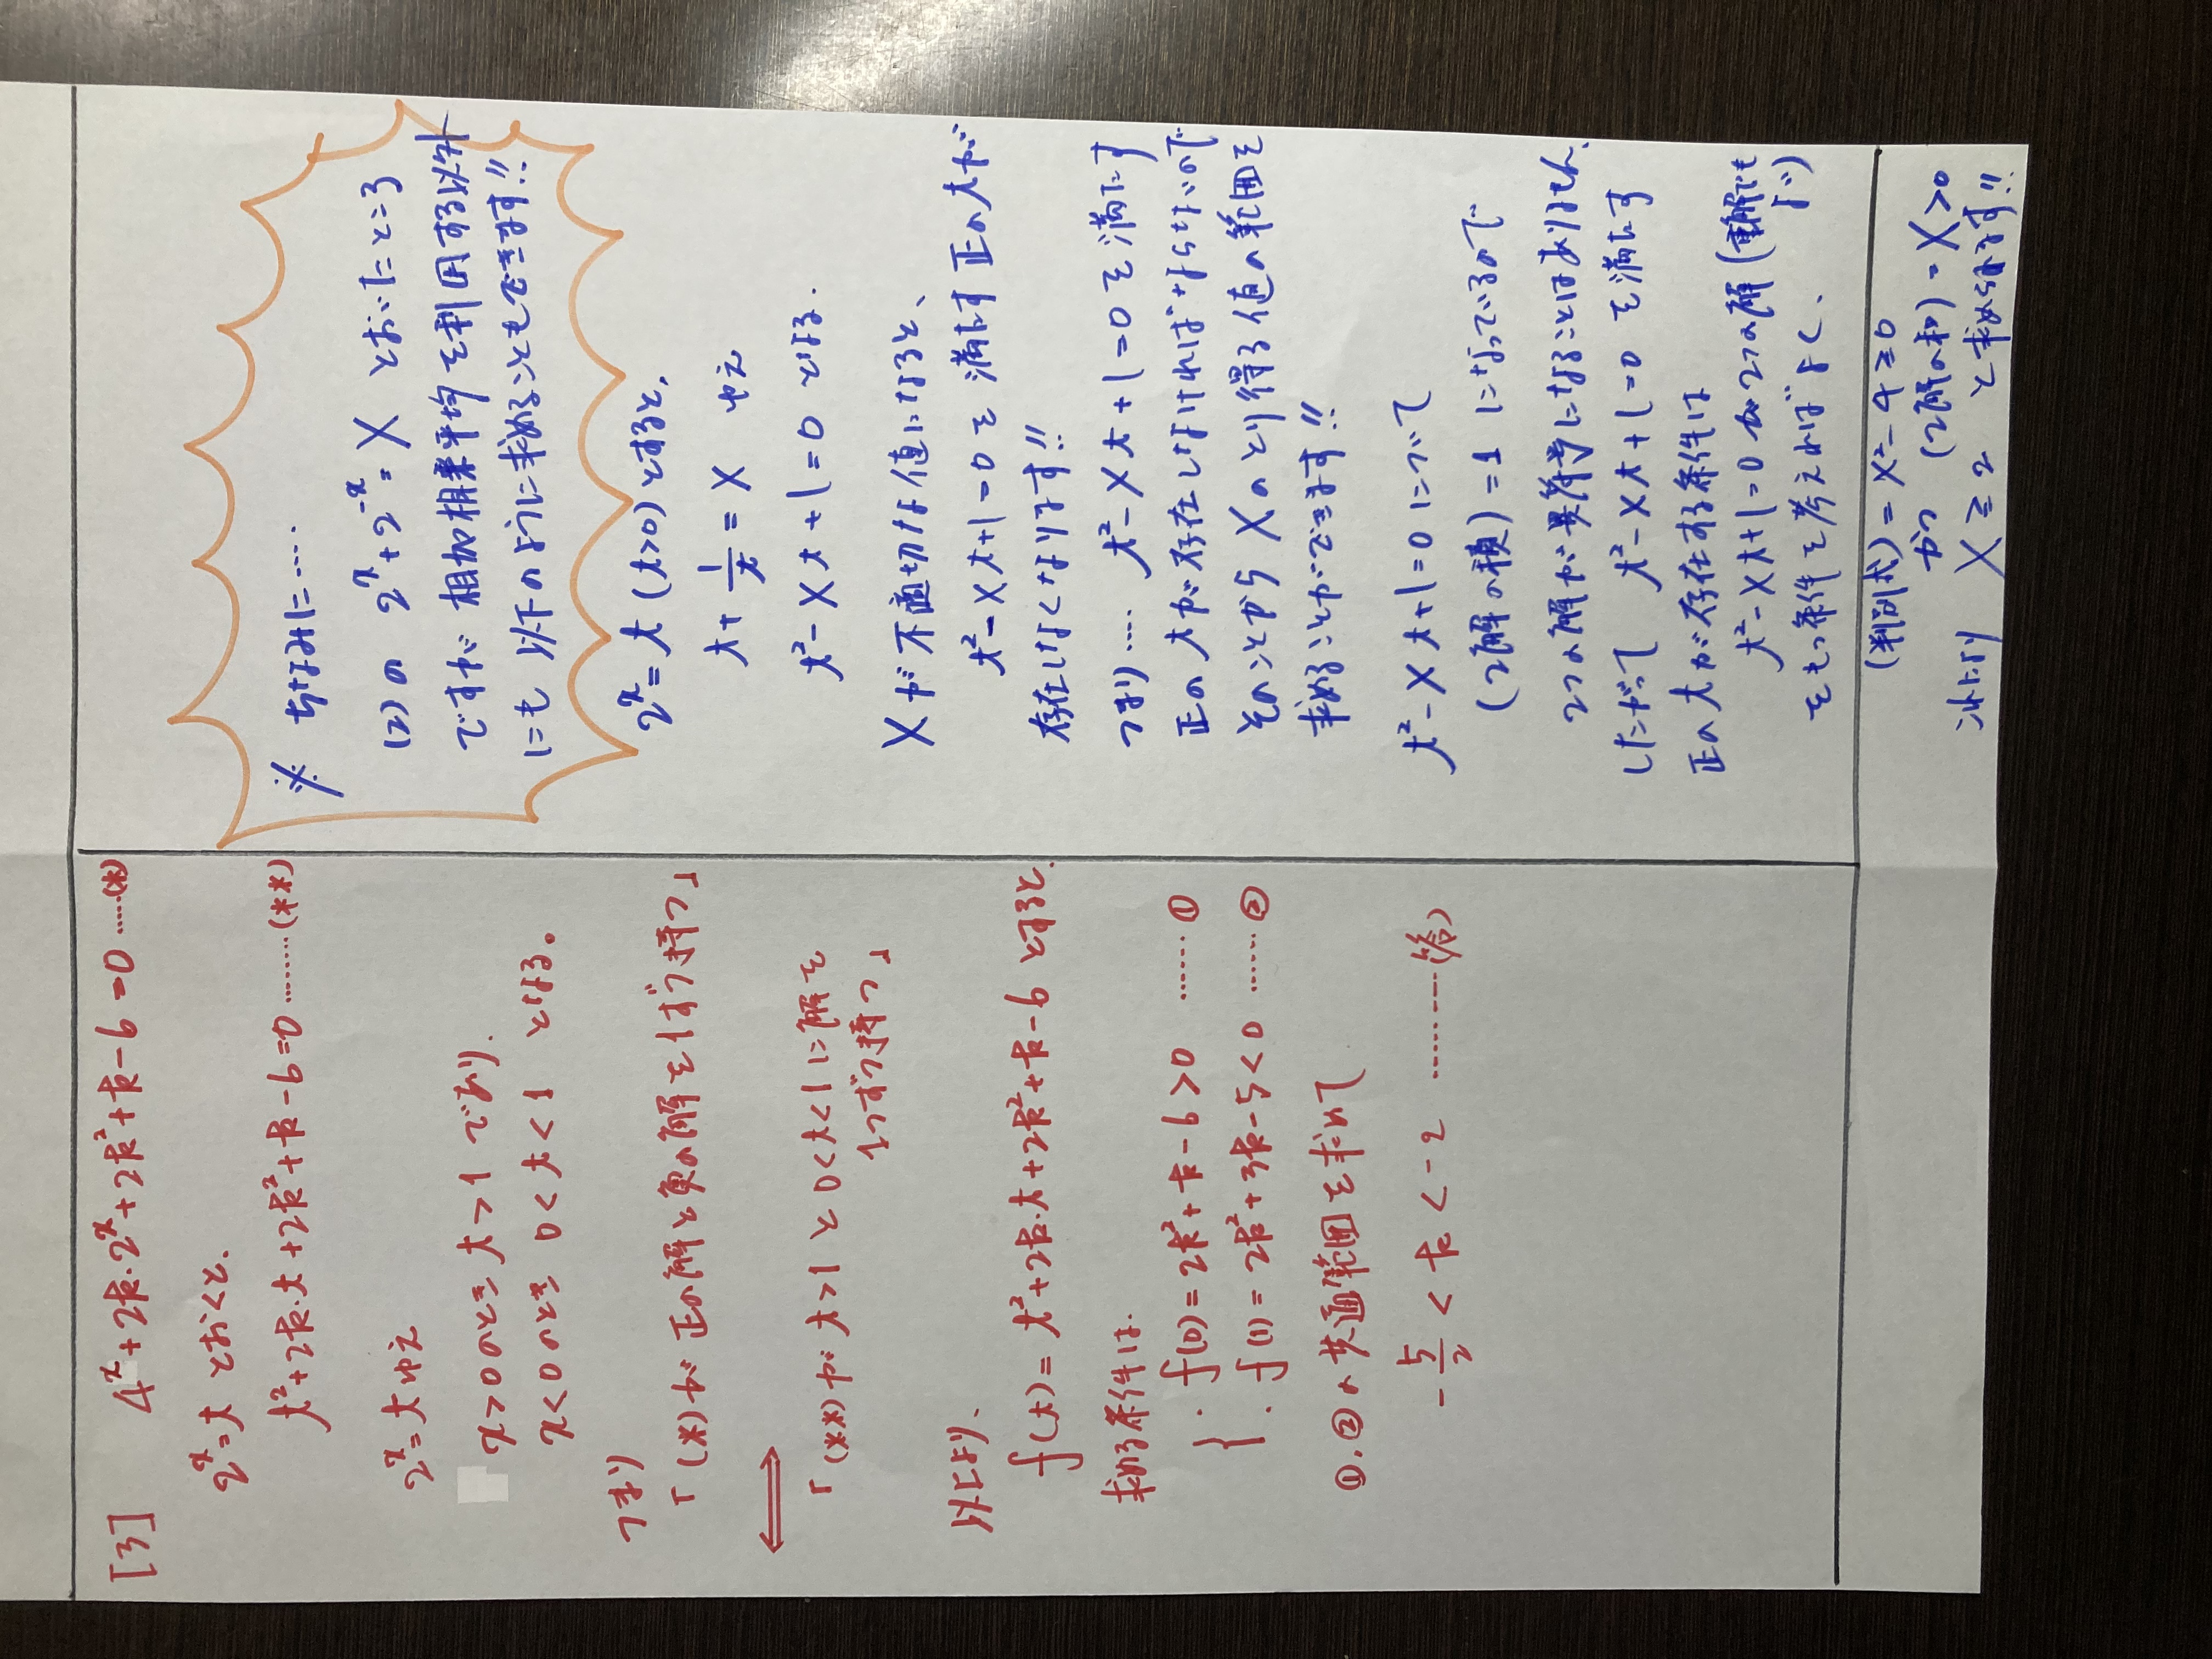 [3] 4^x+2k・2^x+2k²+k-6=0 ……(*)
2^x=t とおくと、
t²+2k・t+2k²+k-6=0 ………(**)
2^x=t ゆえ
x>0のとき t>1 であり、
x<0のとき 0<t<1 となる。
つまり
「(*)が正の解と負の解を1ずつ持つ」
⇔
「(**)が t>1 と 0<t<1 に解を
1つずつ持つ」
以上より、
f(t)=t²+2k・t+2k²+k-6 とすると、
求める条件は、
{・f(0)=2k²+k-6>0 ……①
・f(1)=2k²+3k-5<0 ……②
①、②の共通範囲を求めて
-5/2<k<-2 ………(答)
※ ちなみに….
(2)の 2^x+2^-x=X とおいたところ
ですが 相加相乗平均を利用する以外
にも 以下のように求めることもできます!!
2^x=t (t>0) とすると、
t+1/t=X ゆえ
t²-Xt+1=0 となる.
Xが不適切な値になると、
t²-Xt+1=0を満たす正のtが
存在しなくなります!!
つまり…. t²-Xt+1=0を満たす
正のtが存在しなければならないので
そのことからXのとり得る値の範囲を
求めることができます!!
t²-Xt+1=0について
(2解の積)=1 になっているので
2つの解が異符号になることはありません。
したがって t²-Xt+1=0 を満たす
正のtが存在する条件は
t²-Xt+1=0が2つの正の解(重解でもよい)
をもつ条件を考えればよく、
(判別式)=X²-4≧0
かつ (2解の和)=X>0
これにより X≧2 と求められます!!